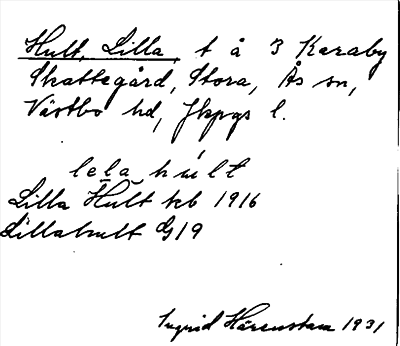 Hult, Lilla, t å 3 Karaby
Skattegård, Stora, Ås sn,
Västbo hd, Jkpgs l.
lela hult
Lilla Hult kb 1916
Lillahult G19
Ingrid Härenstam 1931